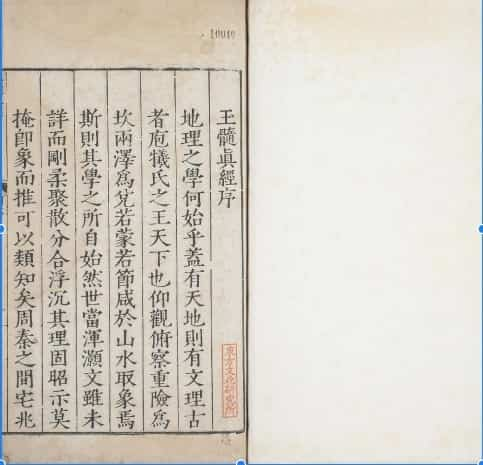 玉髓眞經序
地理之學何始乎蓋有天地則有文理古
者庖犧氏之王天下也仰觀俯察重險爲
坎兩澤爲兌若蒙若節咸於山水取象焉
斯則其學之所自始然世當渾灝文雖未
詳而剛柔聚散分合浮沉其理固昭示莫
掩卽象而推可以類知矣周秦之間宅兆
10040